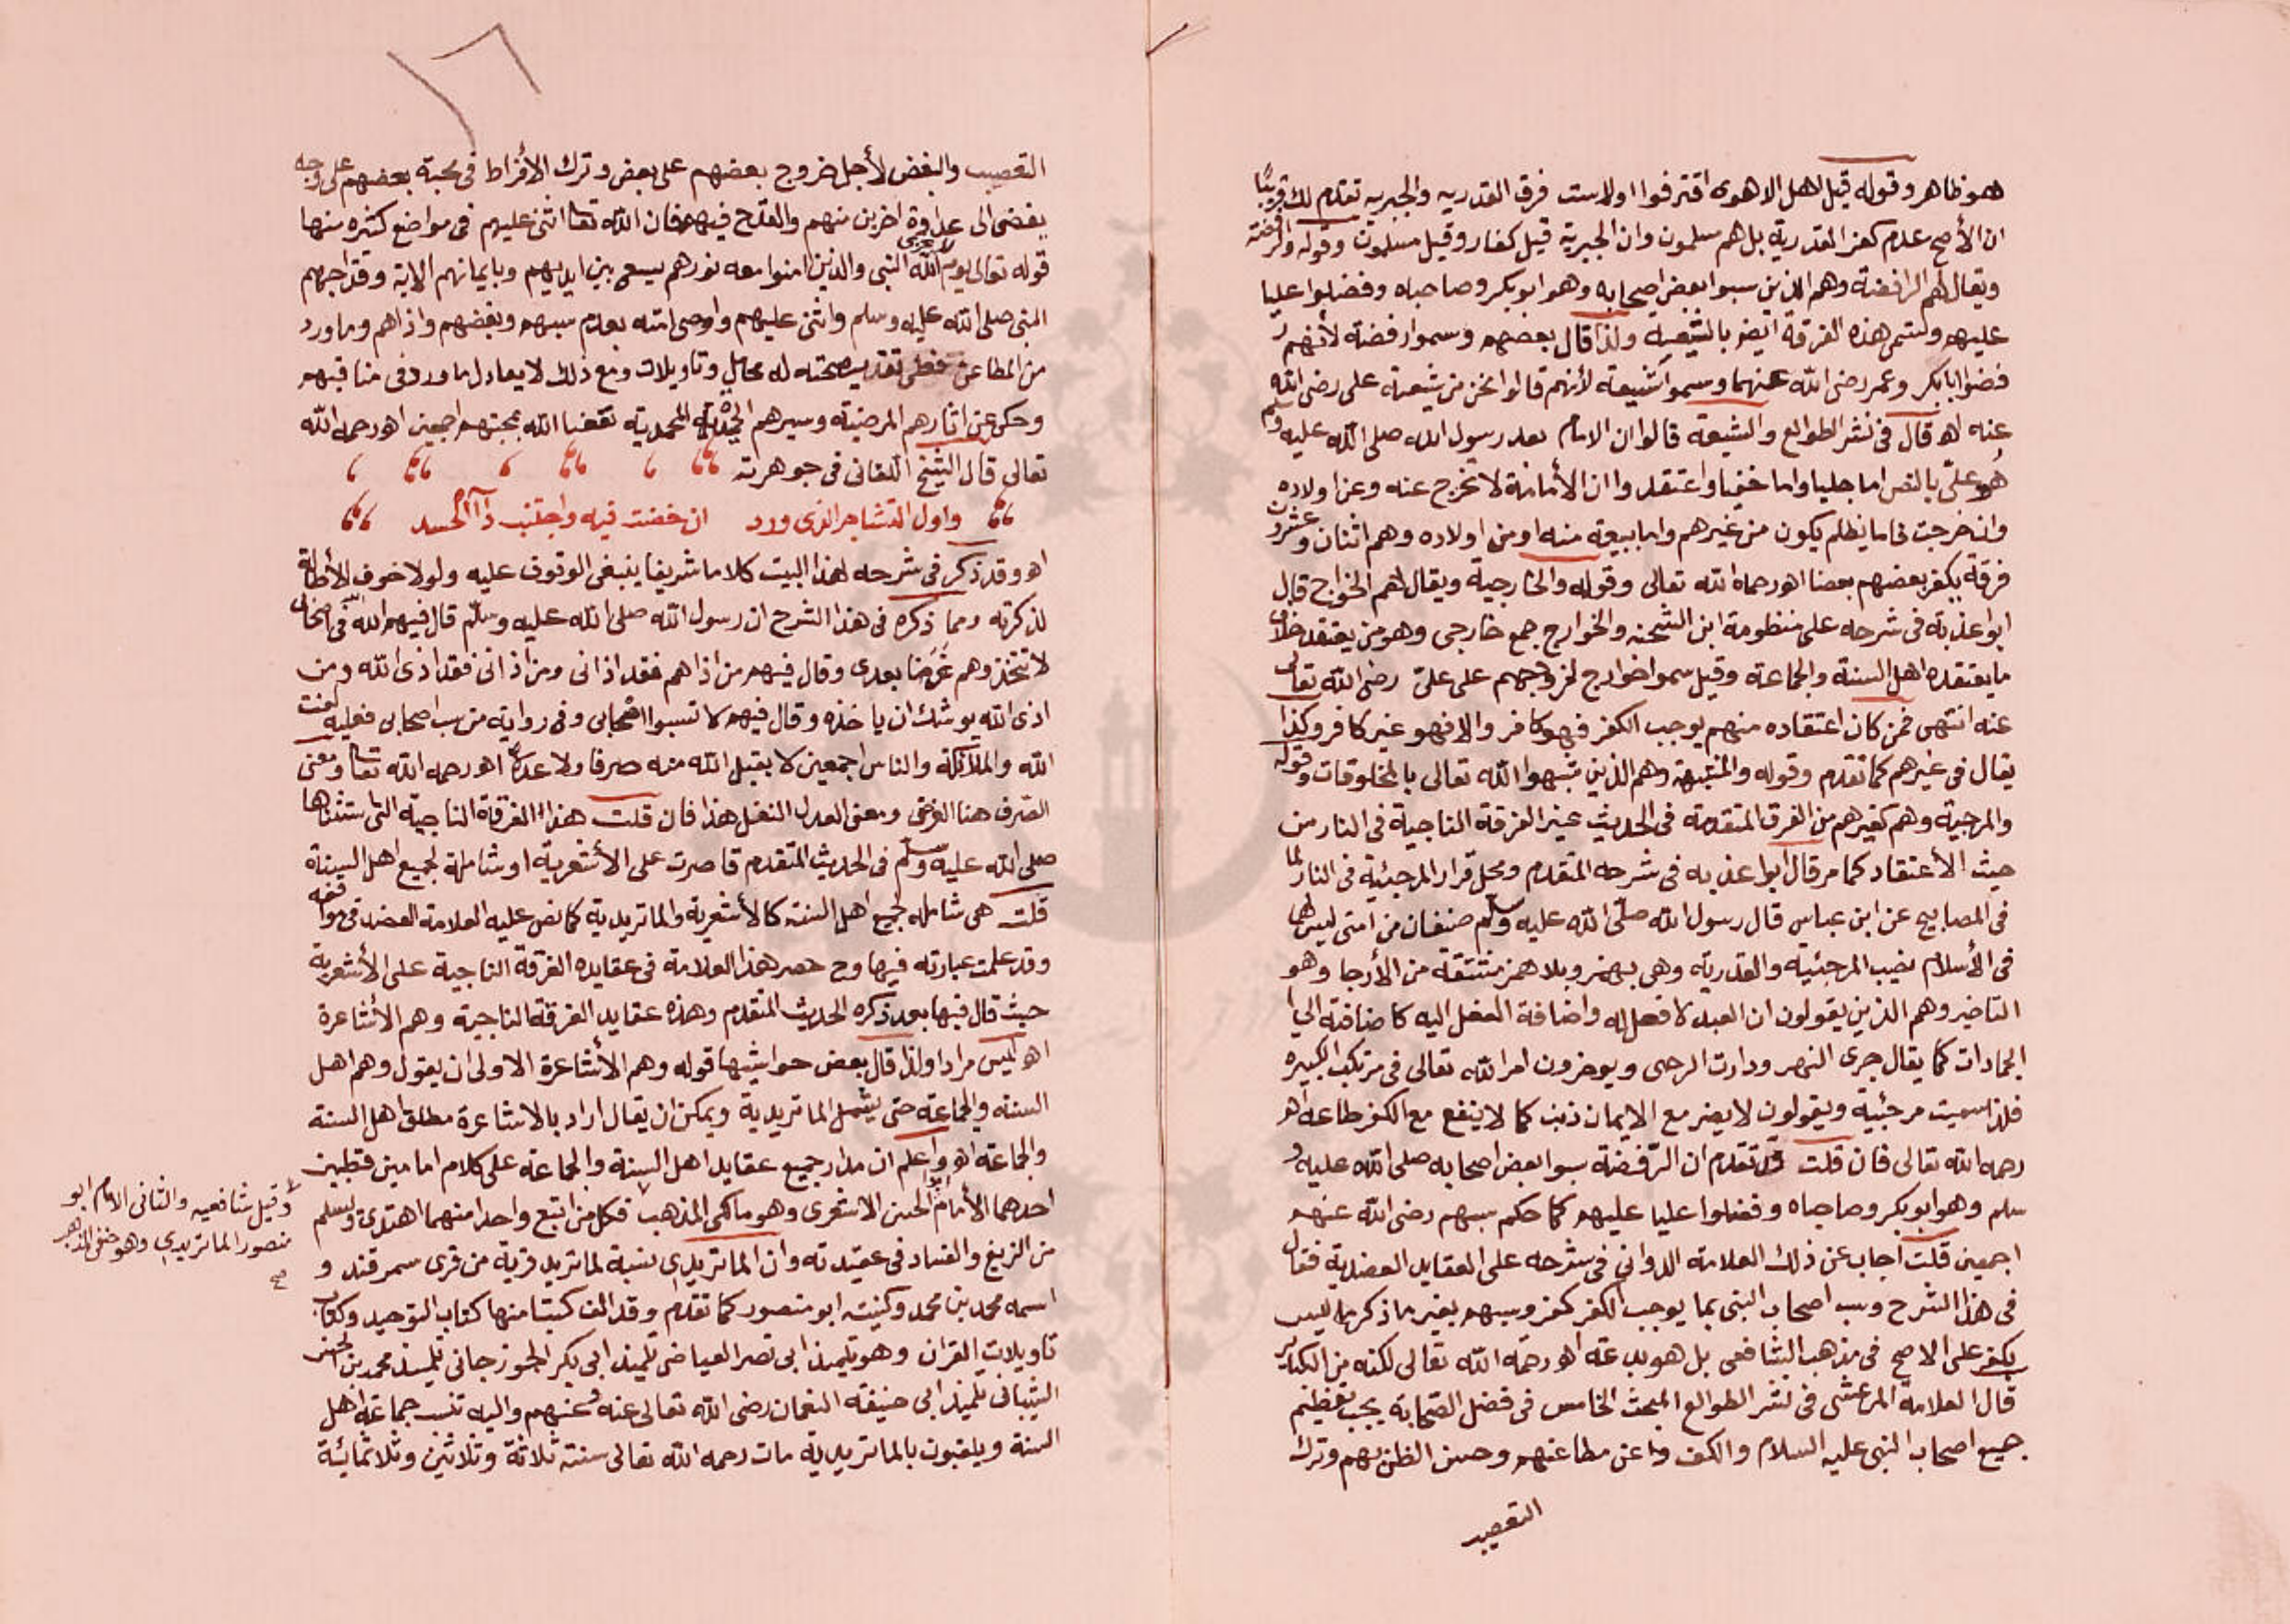 هو ظاهر وقوله قيل لاهل الاهوى افترقوا اولا ست فرق القدريه والجبريه تقدم لك قريبًا
ان الأصح عدم كفر القدرية بل هم مسلمون وان الجبرية قيل كفار وقيل مسلمون وقوله والرافضة
ويقال لهم الرافضة وهم الذين سبوا بعض اصحابه وهو ابو بكر وصاحباه وفضلوا عليا
عليهم وتسمى هذه الفرقة ايضا بالشيعة ولذا قال بعضهم وسموا رفضة لأنهم
رفضوا ابا بكر وعمر رضى الله عنهما وسموا شيعة لأنهم قالوا نحن من شيعة على رضى الله
عنه اهـ قال فى نشر الطوالع والشيعة قالوا ان الامام بعد رسول الله صلى الله عليه وسلم
هو علىّ بالنص اما جليا واما خفيا واعتقدوا ان الأمامة لا تخرج عنه وعن اولاده
وان خرجت فاما بظلم يكون من غيرهم واما ببيعة منه او من اولاده وهم اثنان وعشرون
فرقة يكفر بعضهم بعضا اهـ رحمه الله تعالى وقوله والخارجية ويقال لهم الخوارج قال
ابو عذبة فى شرحه على منظومة ابن الشحنه والخوارج جمع خارجى وهو من يعتقد خلاف
ما يعتقده اهل السنة والجماعة وقيل سموا خوارج لخروجهم على علىّ رضى الله تعالى
عنه انتهى فمن كان اعتقاده منهم يوجب الكفر فهو كافر والا فهو غير كافر وكذا
يقال فى غيرهم كما تقدم وقوله والمشبهة وهم الذين شبهوا الله تعالى بالمخلوقات وقوله
والمرجية وهم كغيرهم من الفرق المتقدمة فى الحديث غير الفرقة الناجية فى النار من
حيث الأعتقاد كما مر قال ابو اعذبه فى شرحه المتقدم ومحل قرار المرجئية فى النار لما
فى المصابيح عن ابن عباس قال رسول الله صلّى الله عليه وسلم صنفان من امتى ليس لها
فى الأسلام نصيب المرجئية والقدرية وهى بهمز وبلا همز مشتقة من الأرجا وهو
التاخير وهم الذين يقولون ان العبد لا فعل له واضافة الفعل اليه كاضافته الى
الجمادات كما يقال جرى النهر ودارت الرحى ويوخرون امر الله تعالى فى مرتكب الكبيره
فلذا سميت مرجئية ويقولون لا يضر مع الايمان ذنب كما لا ينفع مع الكفر طاعه اهـ
رحمه الله تعالى فان قلت قد تقدم ان الرّفضة سبوا بعض اصحابه صلى الله عليه و
سلم وهو ابو بكر وصاحباه وفضلوا عليا عليهم كما حكم سبهم رضى الله عنهم
اجمعين قلت اجاب عن ذلك العلامة الدوانى فى شرحه على العقايد العضدية فقال
فى هذا الشرح وسب اصحاب النبى بما يوجب الكفر كفر وسبهم بغير ما ذكر ما ليس
بكفر على الاصح فى مذهب الشافعى بل هو بدعة اهـ رحمه الله تعالى لكنه من الكباير
قال العلامة المرعشى فى نشر الطوالع المبحث الخامس فى فضل الصّحابة يجب تعظيم
جميع اصحاب النبى عليه السلام والكف عن مطاعنهم وحسن الظن بهم وترك
التعصيب
التعصيب والبغض لأجل خروج بعضهم على بعض وترك الأفراط فى محبة بعضهم على وجه
يفضى الى عداوة اخرين منهم والقدح فيهم فان الله تعا اثنى عليهم فى مواضع كثيره منها
قوله تعالى يوم لا يخزى الله النبى والذين امنوا معه نورهم يسعى بين ايديهم وبايمانهم الاية وقد احبهم
النبى صلى الله عليه وسلم واثنى عليهم واوصى امته بعدم سبهم وبغضهم واذاهم وما ورد
من المطاعن فعلى تقدير صحته له محامل وتاويلات ومع ذلك لا يعادل ما ورد فى مناقبهم
وحكى عن اثارهم المرضية وسيرهم الحميدة المحمدية نفعنا الله بمحبتهم اجمعين اهـ رحمه الله
تعالى قال الشيخ اللقانى فى جوهرته
واول التشاجر الذى ورد ان خضت فيه واجتنب داآ الحسد
اهـ وقد ذكر فى شرحه لهذا البيت كلاما شريفا ينبغى الوقوف عليه ولولا خوف الأطالة
لذكرته ومما ذكره فى هذا الشرح ان رسول الله صلى الله عليه وسلم قال فيهم الله الله فى اصحابى
لا تتخذوهم غَرَضا بعدى وقال فيهم من اذاهم فقد اذانى ومن اذانى فقد اذى الله ومن
اذى الله يوشك ان ياخذه وقال فيهم لا تسبوا اصحابى وفى رواية من سب اصحابى فعليه لعنت
الله والملائكة والناس اجمعين لا يقبل الله منه صرفا ولا عدلا اهـ رحمه الله تعا ومعنى
الصّرف هنا الفرض ومعنى العدل النفل هذا فان قلت هذه الفرقة الناجية التى استثناها
صلى الله عليه وسلم فى الحديث المتقدم قاصرت على الأشعرية او شاملة لجميع اهل السنة
قلت هى شامله لجميع اهل السنة كالأشعرية والماتريدية كما نص عليه العلامة العضد فى مواقفه
وقد علمت عبارته فيها وح حصر هذا العلامة فى عقايده الفرقة الناجية على الأشعرية
حيث قال فيها بعد ذكره الحديث المتقدم وهذه عقايد الفرقة الناجية وهم الأشاعرة
اهـ ليس مرادا ولذا قال بعض حواشيها قوله وهم الأشاعرة الاولى ان يقول وهم اهل
السنة والجماعة حتى يشمل الماتريدية ويمكن ان يقال اراد بالاشاعرة مطلق اهل السنة
والجماعة اهـ واعلم ان مدار جميع عقايد اهل السنة والجماعة على كلام امامين قطبين
احدهما الأمام ابو الحسن الاشعرى وهو مالكى المذهب فكل من اتبع واحدا منهما اهتدى وسلم
وقيل شافعيه والثانى الامام ابو
منصور الماتريدى وهو حنفى المذهب
صح
من الزيغ والفساد فى عقيدته وان الماتريدى نسبة لماتريد قرية من قرى سمرقند و
اسمه محمد بن محمد وكنيته ابو منصور كما تقدم وقد الف كتبا منها كتاب التوحيد وكتاب
تاويلات القران وهو تلميذ ابى نصر العياضى تلميذ ابى بكر الجوزجانى تلميذ محمد بن الحسن
الشيبانى تلميذ ابى حنيفة النعمان رضى الله تعالى عنه وعنهم واليه تنسب جماعة اهل
السنة ويلقبون بالماتريدية مات رحمه الله تعالى سنة ثلاثة وثلاثين وثلاثمائة